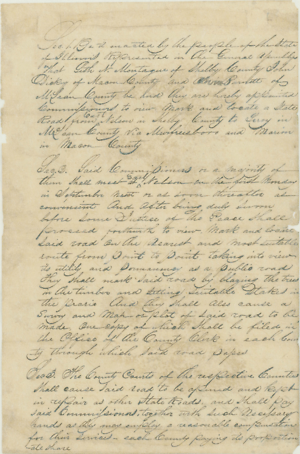 Sec 1. Be it enacted by the people of the State
of Illinois Represented in the General Assembly
That Seth N. Montague of Shelby County John
Dickey of Macon County and
McLean County be and they are hereby appointed
Commissioners to view Mark and locate a State
Road from Nelson in Shelby County to Leroy in
McLean County via Marion
in Macon County
Sec 2. Said Commissioners or a majority of
them shall meet at Nelson on the first Monday
in September next or as soon thereafter as
convenient And After being duly sworn
before some Justice of the Peace Shall
proceed forthwith to view Mark and locate
said road on the nearest and most suitable
route from Point to Point taking into view
its utility and permanency as a public road
They shall mark said road by blazing the trees
in the timber and setting suitable Stakes in
the Prairie And they shall Also cause a
Survey and Map or plat of said road to be
made, one copy of which shall be filed in
the Office of the County Clerk in each Coun
ty through which said road passes
Sec 3. The County Courts of the respective Counties
shall cause said road to be opened and kept
in repair as other State Roads, and shall pay
said Commissioners together with such Necessary
hands as they may employ a reasonable compensation
for their services each County paying its proportion